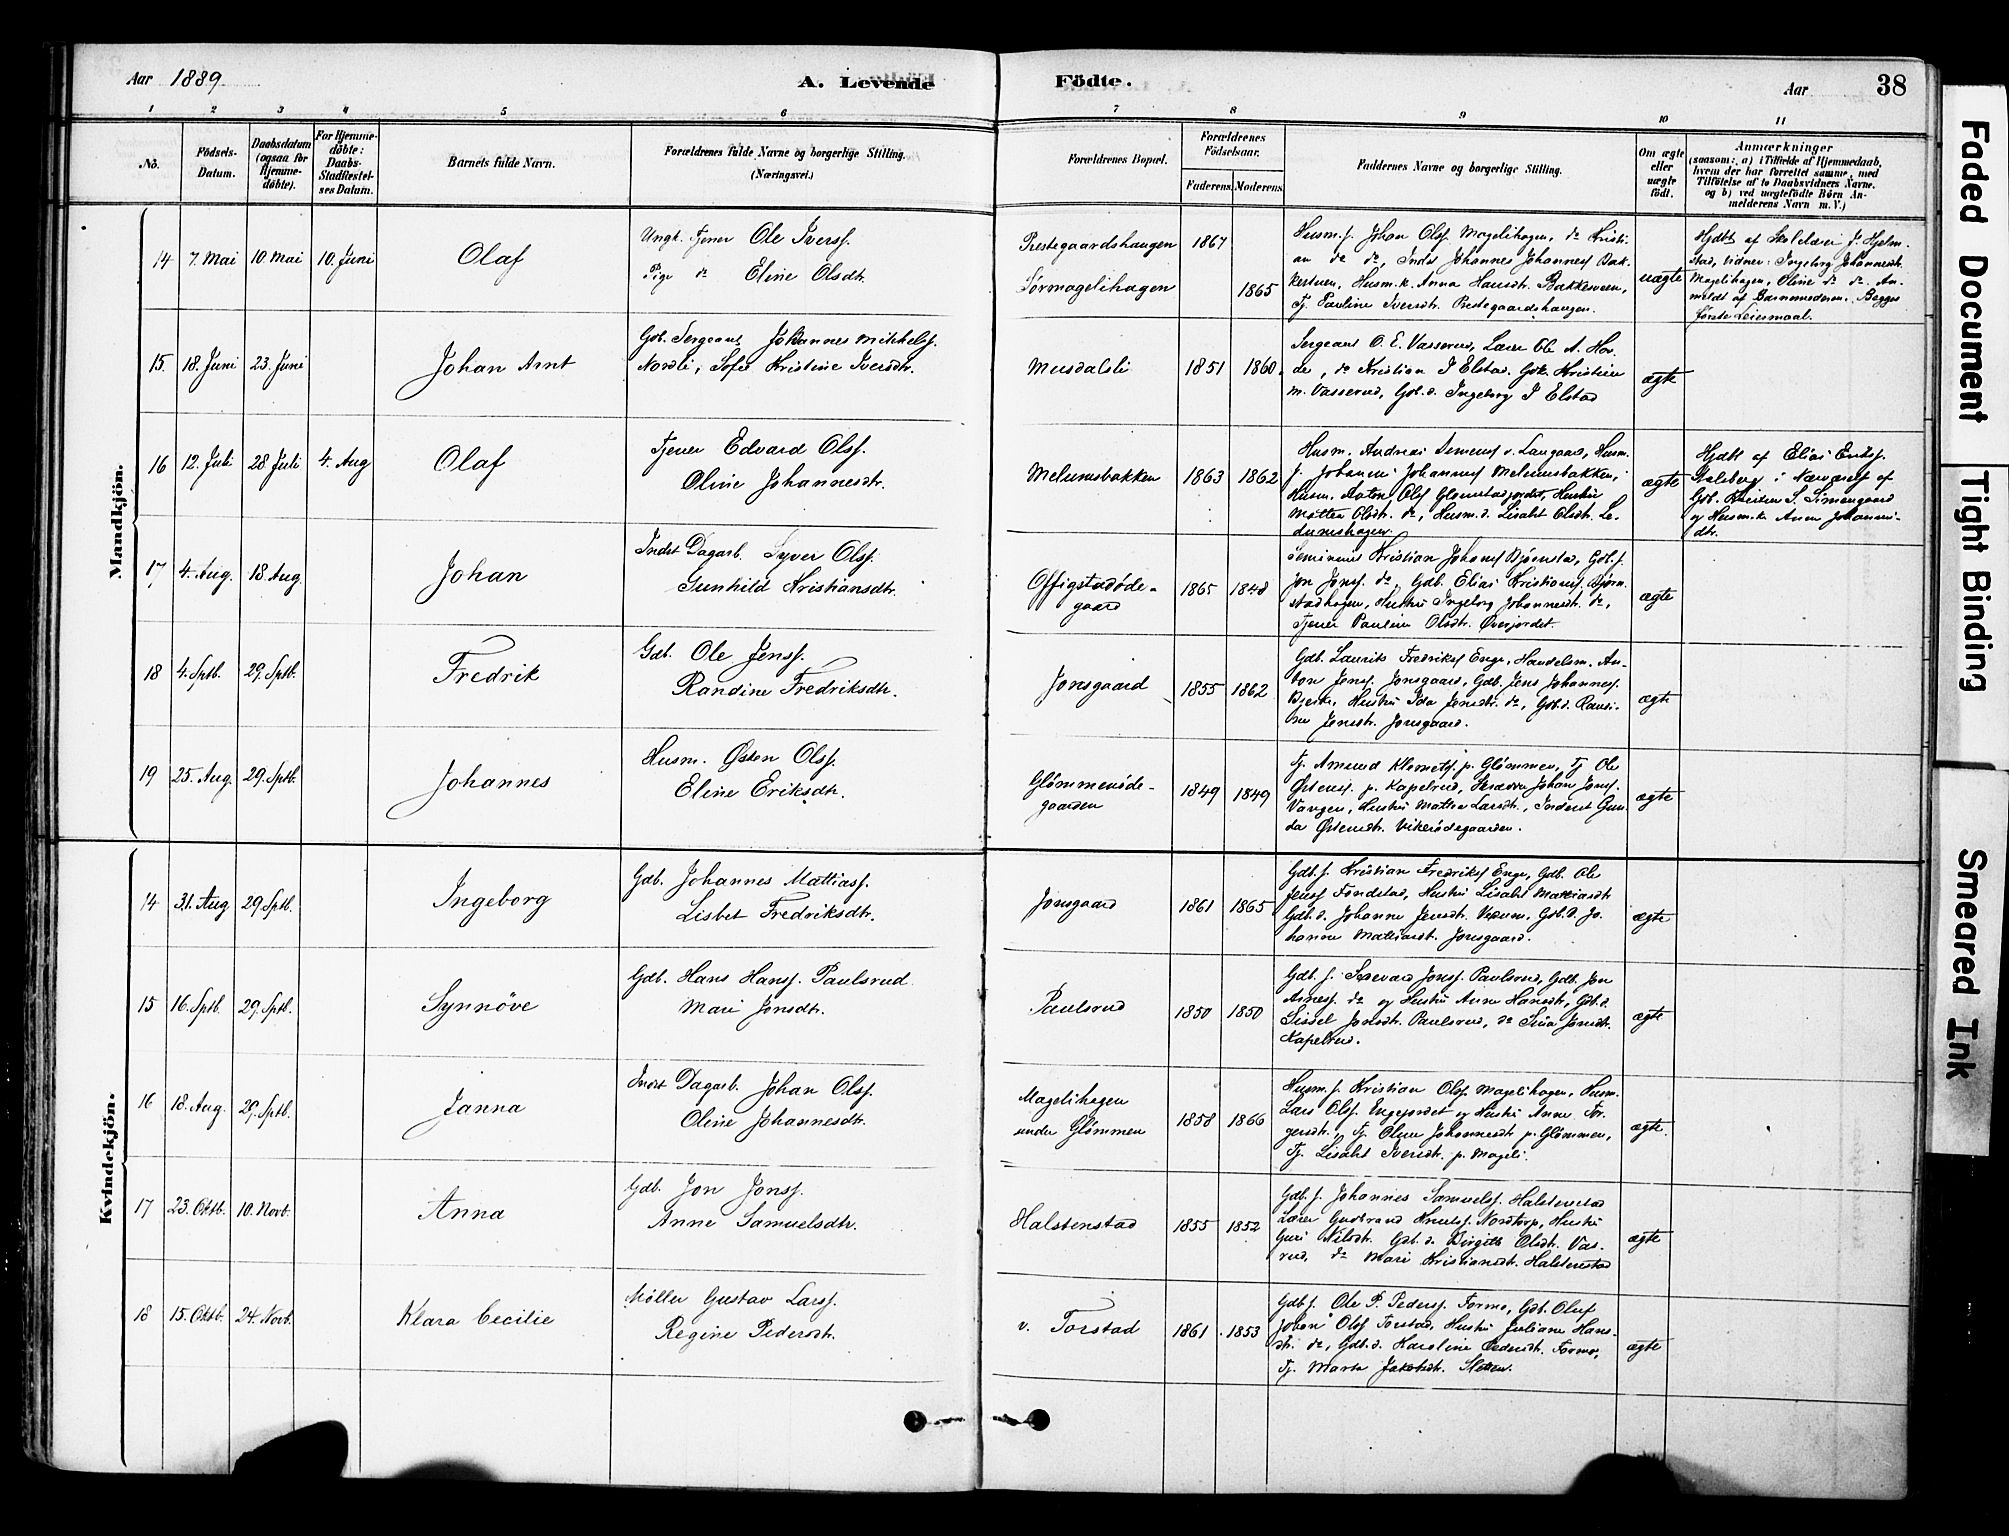 Aar 1889.
A. Levende
Födte.
Aar
38
1 2 3 4 5 6 7 8 9 10 11
No.
Födsels-Datum.
Daabsdatum (ogsaa for Hjemme-døbte).
For Hjemme-døbte: Daabs-Stadfæstel-ses Datum.
Barnets fulde Navn.
Forældrenes fulde Navne og borgerlige Stilling. (Næringsvei.)
Forældrenes Bopæl.
Forældrenes Födselsaar.
Faderens. Moderens.
Faddernes Navne og borgerlige Stilling.
Om ægte eller uægte födt.
Anmærkninger
(saasom: a) i Tilfælde af Hjemmedaab,
hvem der har forrettet samme, med
Tilföielse af to Daabsvidners Navne.
og b) ved uægtefödte Börn An-
melderens Navn m. V.)
Mandkjön.
14 7. Mai 10 Mai 10. Juni Olaf
Ungk. Tjener Ole Iverss.
Pige do Eline Olsdtr.
Prestegaardshaugen 1867
Sørmagelihagen 1865
Husm. s. Johan Olss. Magelihagen, do Kristi-
an do do, Inds Johannes Johanness Bak-
kestuen, Husm.k. Anna Hansdtr. Bakkeveen,
Tj. Pauline Iversdtr. Prestegaardshaugen.
uægte
Hjdbt af Skolelærer J. Hjelm-
stad, vidner: Ingeborg Johannesdtr.
Magelihagen, Oline do do. An-
meldt af Barnemoderen. Begges
første Leiermaal.
15. 18. Juni 23. Juni Johan Arnt
Gdb. Sergeant Johannes Mikkelss.
Nordli, Sofie Kristine Iversdtr.
Musdalsli 1851 1860.
Sergeant O. E. Vasserud, Lærer Ole A. Hov-
de, do Kristian J Elstad. Gdk. Kristine
M. Vasserud, Gdb.d. Ingeborg J Elstad
ægte
16 12. Juli 28 Juli 4. Aug Olaf
Tjener Edvard Olss.
Oline Johannesdtr.
Melumsbakken 1863 1862
Husm. Andreas Simenss v. Laugaard, Husm.
s. Johannes Johanness Melumsbakken,
Husm. Anton Olss Glomstadjordet, Hustru
Mathea Olsdtr. do, Husm.d. Lisabet Olsdtr. Le-
dumshagen
ægte
Hjdbt af Elias Erikss.
Dalsberg i Nærværelse af
Gdb. Kristen S. Simengaard
og Husm.k. Anne Johannes-
dtr.
17 4. Aug. 18 Aug. Johan
Indst Dagarb. Syver Olss.
Gunhild Kristiansdtr.
Offigstadøde-
gaard 1865 1848
Seminarist Kristian Johanss Bjørnstad, Gdb. s.
Jon Jonss. do, Gdb. Elias Kristianss Bjørn-
stadhagen, Hustru Ingeborg Johannesdt. do,
Tjener Pauline Olsdtr. Øverjordet.
ægte
18 4. Sptb. 29. Sptb. Fredrik
Gdb. Ole Jenss.
Randine Fredriksdtr.
Jonsgaard 1855 1862
Gdb. Laurits Fredrikss Enge, Handelsm. An-
ton Jenss. Jonsgaard, Gdb. Jens Johanness.
Bjerke, Hustru Ida Jensdtr. do, Gdb.d. Randi-
ne Jensdtr. Jonsgaard.
ægte
19 25. Aug. 29. Sptb. Johannes
Husm. Østen Olss.
Eline Eriksdtr.
Glømmenøde-
gaarden 1849 1849
Tj. Amund Klemetss. p. Glømmen, Tj. Ole
Østenss. p. Kapelrud, Skrædder Johan Jonss.
Vangen, Hustru Mathea Larsdtr., Inderst Gun-
da Østensdtr. Vikenødegaarden.
ægte
Kvindekjön.
14 31. Aug 29 Sptb. Ingeborg
Gdb. Johannes Mattiass.
Lisbet Fredriksdtr.
Jonsgaard 1861 1865
Gdb. s. Kristian Fredrikss Enge, Gdb. Ole
Jenss Fondstad, Hustru Lisabet Mattiasdtr
Gdb. d. Johanne Jensdt. Vedum, Gdb.d. Jo-
hanne Mattiasdt. Jonsgaard.
ægte
15 16. Sptb. 29. Sptb. Synnöve
Gdb. Hans Hanss. Paulsrud
Mari Jonsdtr.
Paulsrud 1850 1850
Gdb. s. Sævard Jonss. Paulsrud, Gdb. Jon
Arness. do og Hustru Anne Hansdt, Gdb.d.
Sissel Jonsdt. Paulsrud, do Siña Jonsdt.
Kapelrud.
ægte
16 18. Aug. 29. Sptb. Janna
Indst Dagarb. Johan Olss.
Oline Johannesdtr.
Magelihagen
under Glømmen 1858 1866
Husm. s. Kristian Olss Magelihagen, Husm.
Lars Olss. Engejordet og Hustru Anne Tor-
gersdt., Tj. Oline Johannesdt p. Glømmen,
Tj. Lisabet Iversdt. p. Mageli.
ægte.
17 23. Oktb. 10. Novb. Anna
Gdb. Jon Jonss.
Anne Samuelsdtr.
Halstenstad 1855 1852
Gdb. s. Johannes Samuelss. Halstenstad
Lærer Gudbrand Knutss. Nordtorp, Hustru
Guri Nilsdt. Gdb. d. Birgitte Olsdt. Vas-
rud, do Mari Kristiansdt. Halstenstad
ægte
18 15. Oktb. 24. Novb. Klara Cecilie
Møller Gustav Larss.
Regine Pedersdt.
v. Torstad 1861 1853
Gdb. s. Ole P. Pederss. Formo, Gdb. Oluf
Johan Olss Torstad, Hustru Juliane Hans-
dt. do, Gdb.d. Karoline Pedersdt. Formo,
Tj. Marta Jakobsdt. Sletten.
ægte
Faded Document
Tight Binding
Smeared Ink